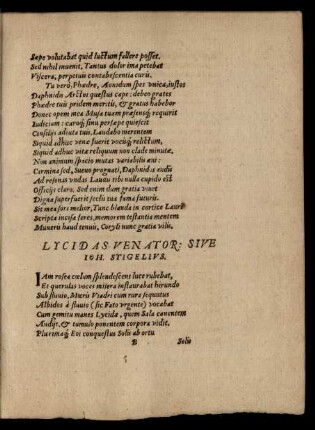 Sæpe volutabat quid luctum fallere posset,
Sed nihil inuenit, Tantus dolor ima petebat
Viscera, perpetuis contabescentia curis.
Tu verò, Phædre, Aonidum spes vnica, iustos
Daphnidis Arctoi questus cape: debeo grates
Phædre tuis pridem meritis, & gratus habebor
Donec opem mea Musa tuam præsensq́; requirit
Iudicium: caroq́; sinu persæpe quiescit
Consilijs adiuta tuis, Laudabo merentem
Siquid adhuc venæ fuerit vocisq́; relictum,
Siquid adhuc vitæ reliquum non clade minutæ,
Non animum spacio mutas variabilis æui:
Carmina sed, Sueuo prognati, Daphnidis audis
Ad resonas vndas Laudu tibi nulla cupido est
Officijs claro. Sed enim dum gratia viuet
Digna superfuerit seclis tua fama futuris.
Sit mea sors melior, Tunc blanda in cortice Lauri
Scripta incisa feres, memorem testantia mentem
Muneris haud tenuis, Coryli nunc gratia vilis,
LYCIDAS VENATOR: SIVE
IOH. STIGELIVS.
IAm rosea cœlum splendescens luce rubebat,
Et querulas voces misera instaurabat hirundo
Sub fluuio, Muris Viadri cum rura sequutus
Albidos à flauis (sic Fato vrgente) vocabat
Cum gemitu manes Lycidæ, quem Sala canentem
Audijt, & tumulo ponentem corpora vidit,
Plurimaq́; Eoi conquestus Solis ab ortu
B Solis